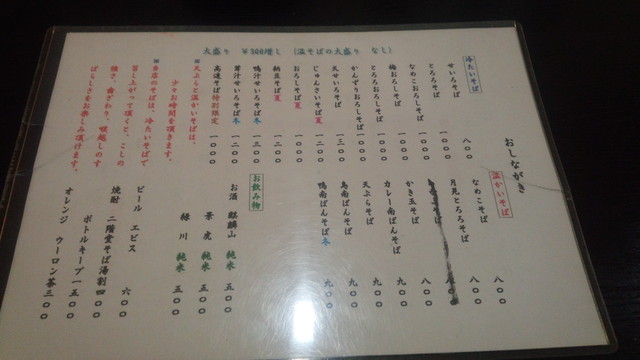 大盛り ¥300増し (温そばの大盛り なし)
おしながき
冷たいそば
せいろそば 八〇〇
とろろそば 一〇〇〇
なめこおろしそば 一〇〇〇
梅おろしそば 一〇〇〇
とろろおろしそば 一〇〇〇
かんずりおろしそば 一〇〇〇
天せいろそば 一三〇〇
じゅんさいそば夏 一二〇〇
おろしそば夏 一〇〇〇
納豆そば夏 一〇〇〇
鴨汁せいろそば冬 一三〇〇
茸汁せいろそば冬 一二〇〇
高遠そば特別限定 一〇〇〇
※天ぷらと温かいそばは、
少々お時間を頂きます。
※当店のそばは、冷たいそばで
召し上がって頂くと、こしの
強さ、歯ざわり、喉越しのす
ばらしさをお楽しみ頂けます。
温かいそば
なめこそば 八〇〇
月見とろろそば 八〇〇
かき玉そば 八〇〇
カレー南ばんそば 九〇〇
天ぷらそば 九〇〇
鳥南ばんそば 九〇〇
鴨南ばんそば冬 九〇〇
お飲み物
お酒 麒麟山 純米 五〇〇
景虎 純米 五〇〇
緑川 純米 五〇〇
ビール エビス 六〇〇
焼酎 二階堂そば湯割 四〇〇
ボトルキープ 一五〇〇
オレンジ ウーロン茶 三〇〇